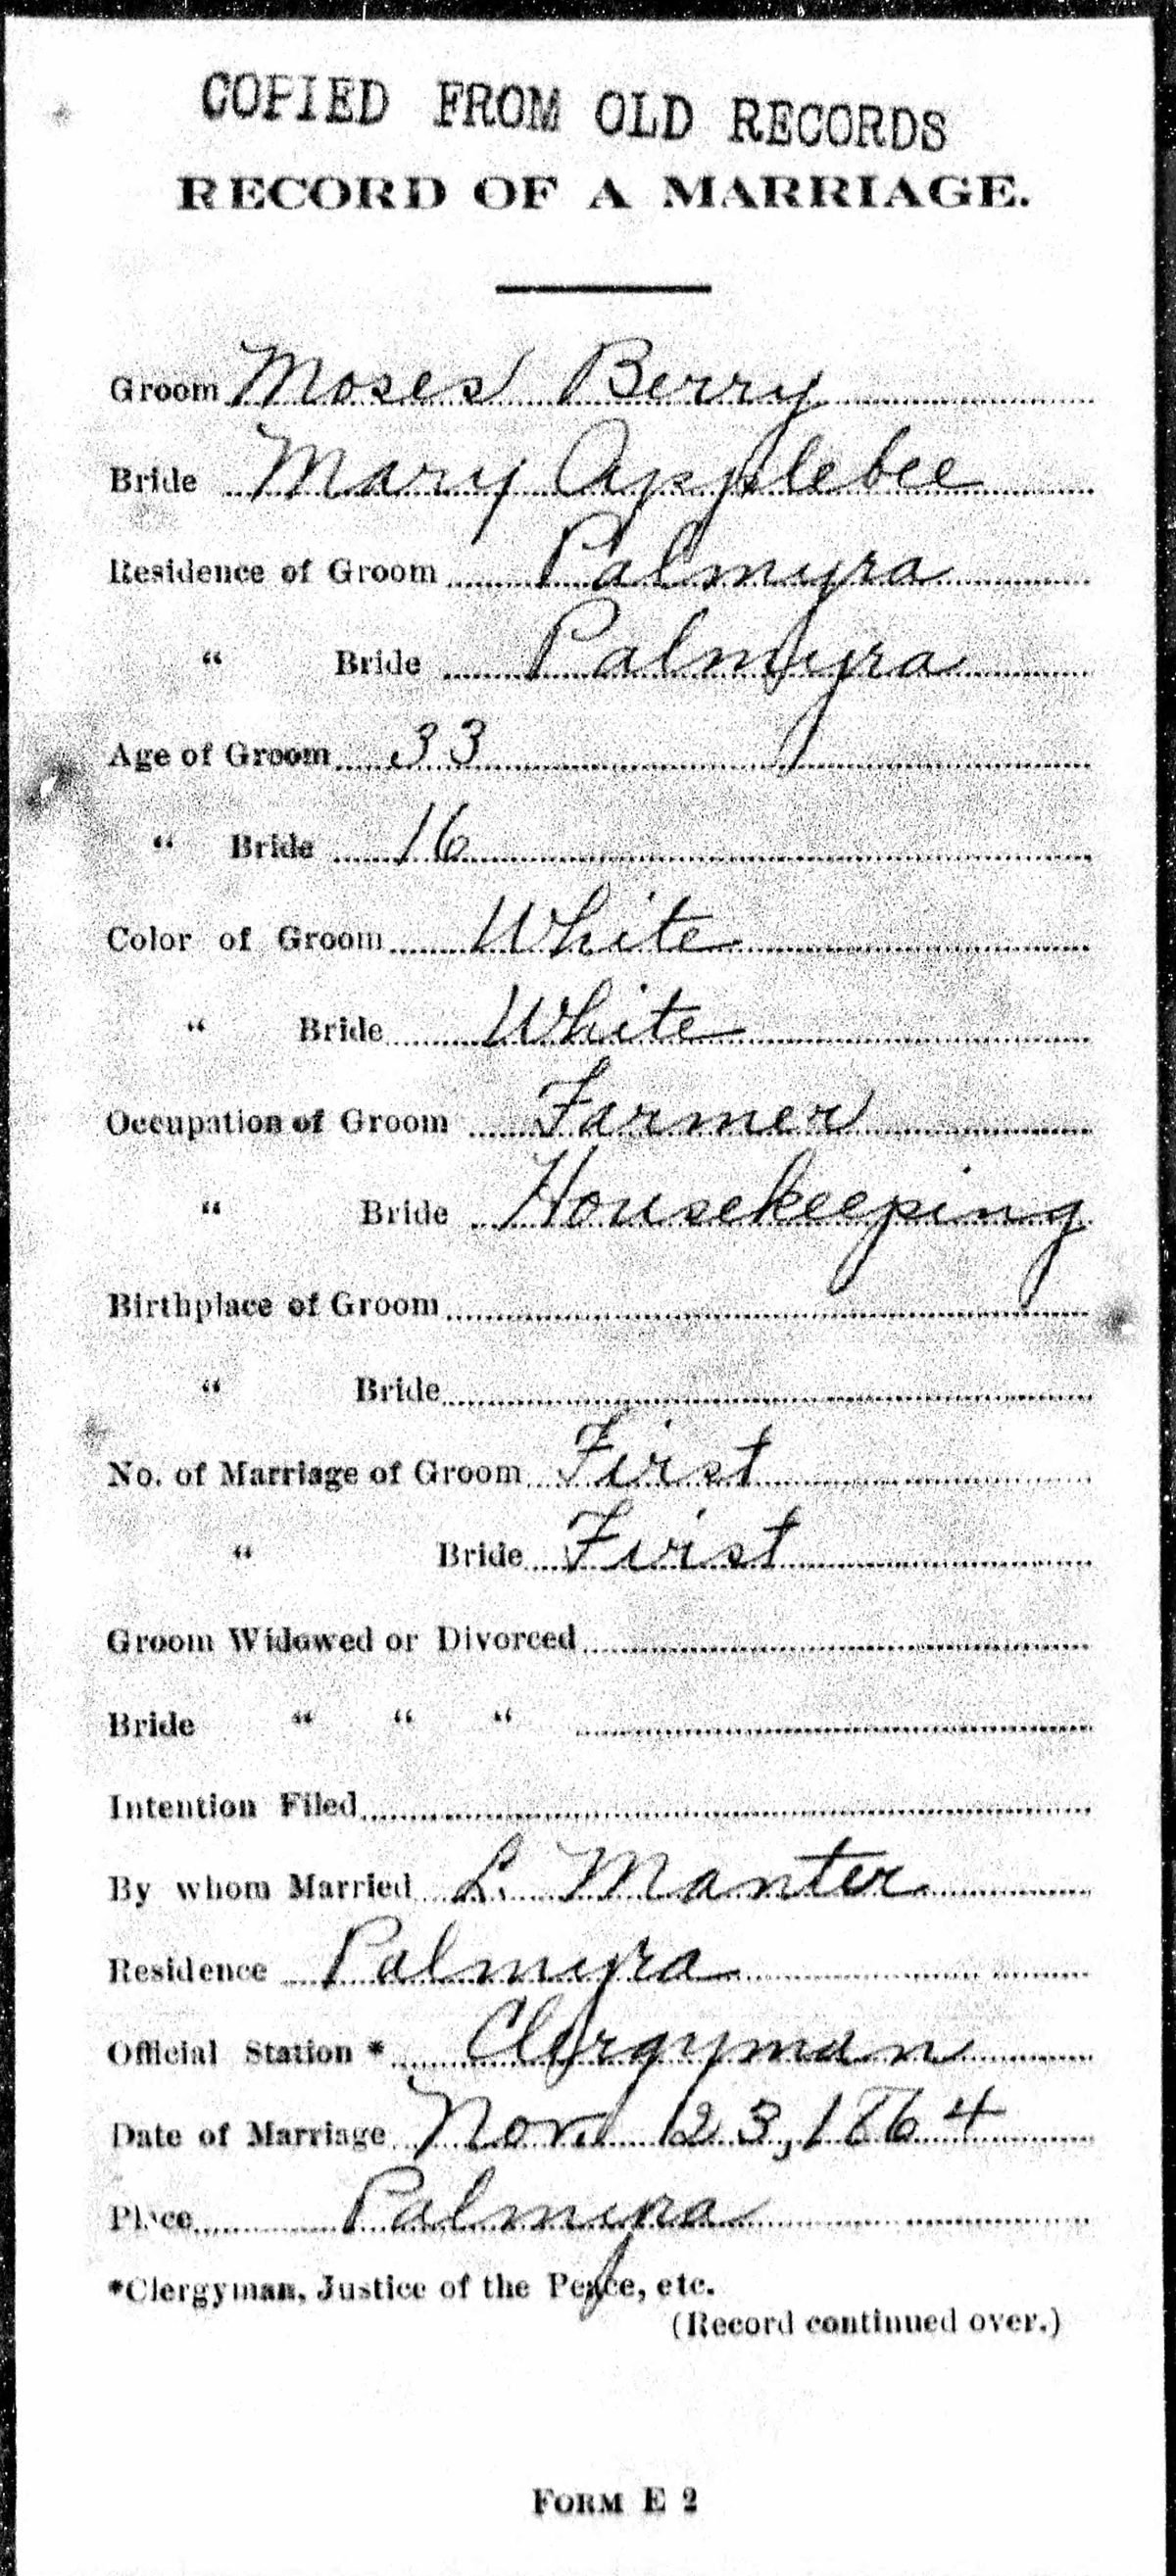 COPIED FROM OLD RECORDS
RECORD OF A MARRIAGE.
Groom Moses Berry
Bride Mary Applebee
Residence of Groom Palmyra
" Bride Palmyra
Age of Groom 33
" Bride 16
Color of Groom White
" Bride White
Occupation of Groom Farmer
" Bride Housekeeping
Birthplace of Groom
" Bride
No. of Marriage of Groom First
" Bride First
Groom Widowed or Divorced
Bride " " "
Intention Filed
By whom Married L. Manter
Residence Palmyra
Official Station * Clergyman
Date of Marriage Nov 23, 1864
Place Palmyra
*Clergyman, Justice of the Peace, etc.
(Record continued over.)
FORM E 2